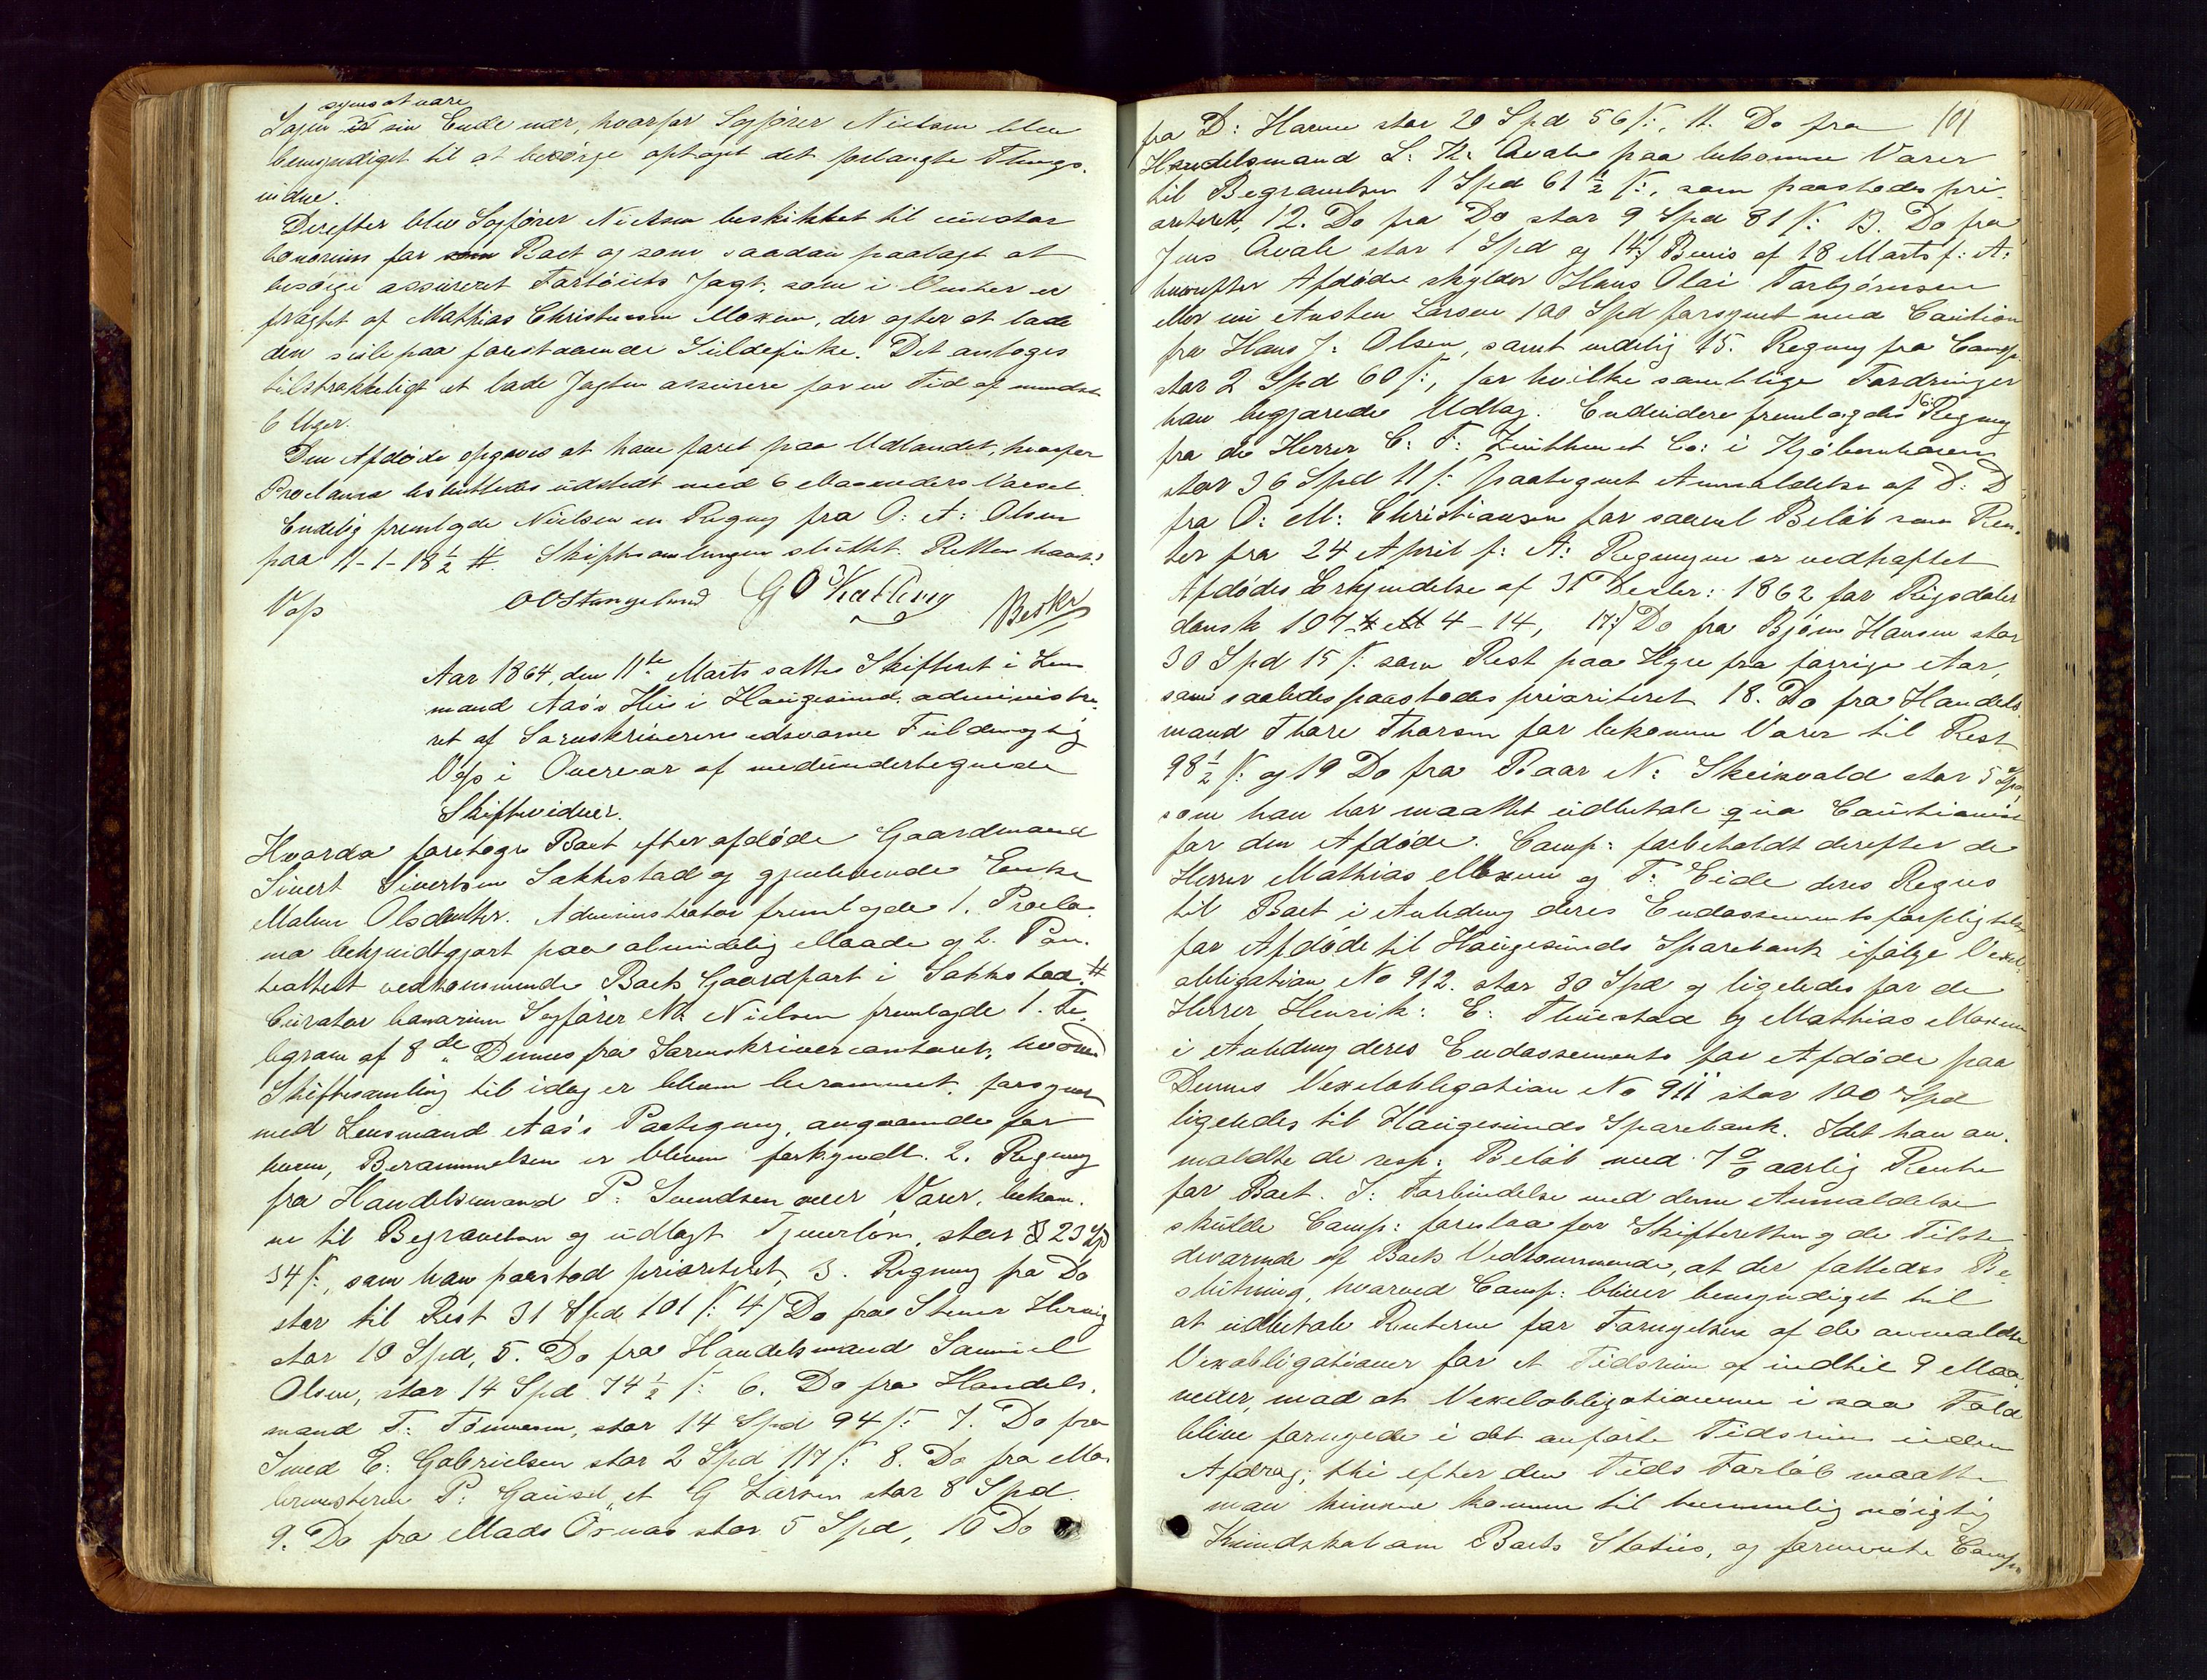 synes at være
Sagen er sin Ende nær, hvorfor Sagfører Nielsen blev
bemyndiget til at besørge optaget det forlangte Things-
vidne.
Derefter blev Sagfører Nielsen beskikket til curator
bonorum for som Boet og som saadan paalagt at
besørge assureret Fartøiets Jagt, som i Vinter er
fragtet af Mathias Christensen Moxem, der agter at lade
den seile paa forestaaende Sildefiske. Det antoges
tilstrækkeligt at lade Jagten assurere for en Tid af mindst
6 Uger.
Den Afdøde opgaves at have faret paa Udlandet, hvorfor
Proclama besluttedes udstedt med 6 Maaneders Varsel.
Endelig fremlagde Nielsen en Regning fra O: A: Olsen
paa 11-1-18½ #. Skiftesamlingen sluttet. Retten hævet:
Vogs OOStangeland GO Kallevig Beskr
Aar 1864, den 11te Marts sattes Skifteret i Lens-
mand Aas's Hus i Haugesund, administre-
ret af Sorenskriverens edsvorne Fuldmægtig
Vogs i Overvær af medundertegnede
Skiftevidner.
Hvorda foretoges Boet efter afdøde Gaardmand
Sivert Sivertsen Sakkestad og gjenlevende Enke
Malene Olsdatter. Administrator fremlagde 1. Procla-
ma bekjendtgjort paa almindelig Maade og 2. Pan-
teattest vedkommende Boets Gaardpart i Sakkestad. #
Curator bonorum Sagfører N: Nielsen fremlagde 1. Te-
legram af 8de Dennes fra Sorenskrivercontoret, hvorved
Skiftesamling til idag er bleven berammet, forsynet
med Lensmand Aas's Paategning, angaaende for
hvem, Berammelsen er bleven forkyndt. 2. Regning
fra Handelsmand P: Svendsen over Varer, bekom-
ne til Begravelsen og udlagt Tjenerløn, stor 23 Spd
34 ß:, som han paastod prioriteret, 3. Regning fra Do
stor til Rest 31 Spd 101 ß: 4) Do fra Stener Hervig
stor 10 Spd, 5. Do fra Handelsmand Samuel
Olsen, stor 14 Spd 74½ ß: 6. Do fra Handels-
mand T: Tönnesen, stor 14 Spd 94 ß: 7. Do fra
Smed E: Gabrielsen stor 2 Spd 117 ß: 8. Do fra Ma-
lermestrene P: Gausel et G Larsen stor 8 Spd.
9. Do fra Mads Osnæs stor 5 Spd, 10 Do
101
fra D: Havne stor 20 Spd 56 ß:, 11. Do fra
Handelsmand L: K: Qvale paa bekomne Varer
til Begravelsen 1 Spd 61½ ß:, som paastodes pri-
oriteret, 12. Do fra Do stor 9 Spd 81 ß: 13. Do fra
Jens Qvale stor 1 Spd og 14) Bevis af 18 Marts f: A:
hvorefter Afdøde skylder Hans Olai Torbjørnsen
eller nu Austen Larsen 100 Spd forsynet med Caution
fra Hans J: Olsen, samt endelig 15. Regning fra Comp:
stor 2 Spd 60 ß:, for hvilke samtlige Fordringer
han begjærede Udlæg. Endvidere fremlagdes 16: Regning
fra de Herrer C: F: et Co: i Kjøbenhavn
stor 36 Spd 11 ß: paategnet Anmældelse af D: D
fra O: M: Christiansen for saavel Beløb som Ren-
ter fra 24 April f: A: Regningen er vedhæftet
Afdødes Erkjendelse af 31 Decbr: 1862 for Rigsdaler
dansk 107 # M 4 - 14, 17) Do fra Bjørn Hansen stor
30 Spd 15 ß: som Rest paa Hyre fra forrige Aar,
som saaledes paastodes prioriteret 18. Do fra Handels-
mand Thore Thorsen for bekomne Varer til Rest
98½ ß: og 19 Do fra Boar N: Skeisvold stor 5 Spd
som han har maattet udbetale qua Cautionist
for den Afdøde. Comp: forbeholdt derefter de
Herrer Mathias Moxem og T: Eide deres Regres
til Boet i Anledning deres Endossementsforpligtelse
for Afdøde til Haugesunds Sparebank ifølge Vexel-
obligation No 912. stor 30 Spd og ligeledes for de
Herrer Henrik: E: Thuestad og Mathias Moxem
i Anledning deres Endossements for Afdøde paa
Dennes Vexelobligation No 911 stor 100 Spd
ligeledes til Haugesunds Sparebank. Idet han an-
mældte de resp: Beløb med 7% aarlig Rente
for Boet. I: Forbindelse med denne Anmældelse
skulde Comp: foreslaa for Skifteretten og de Tilste-
deværende af Boets Vedkommende, at der fattedes Be-
slutning, hvorved Comp: bliver bemyndiget til
at udbetale Renterne for Fornyelsen af de anmeldte
Vexobligationer for et Tidsrum af indtil 9 Maa-
neder, mod at Vexelobligationerne i saa Fald
blive fornyede i det anførte Tidsrum uden
Afdrag; thi efter den Tids Forløb maatte
man kunne komme til temmelig nøiagtig
Kundskab om Boets Status, og formente Comp: